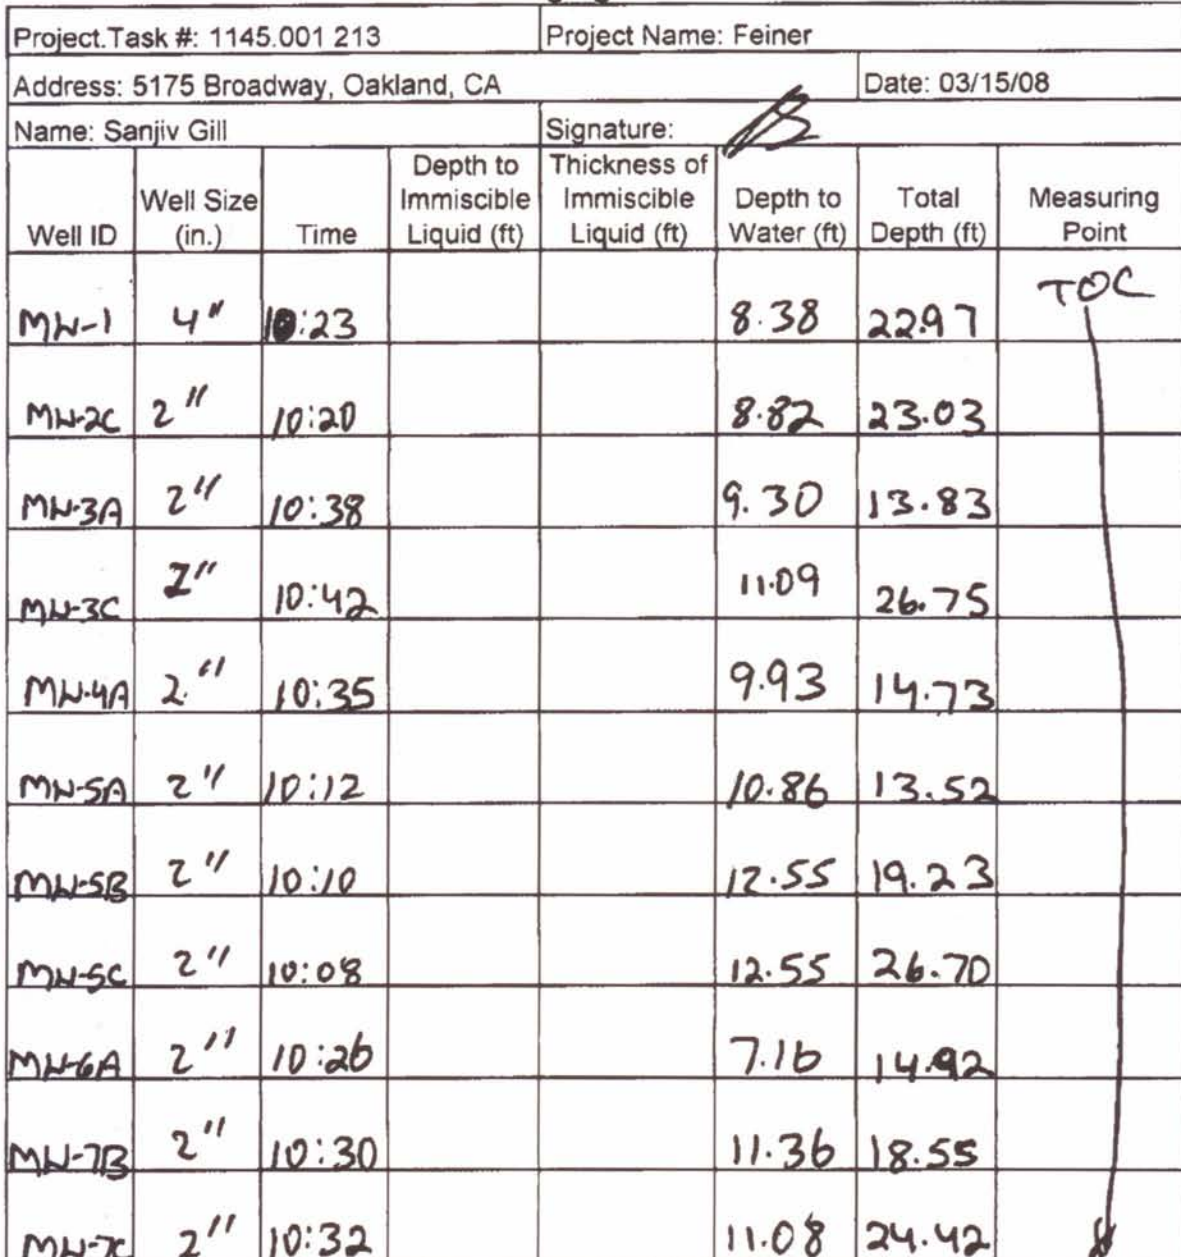 Project.Task #: 1145.001 213 Project Name: Feiner
Address: 5175 Broadway, Oakland, CA Date: 03/15/08
Name: Sanjiv Gill Signature:
Well ID Well Size (in.) Time Depth to Immiscible Liquid (ft) Thickness of Immiscible Liquid (ft) Depth to Water (ft) Total Depth (ft) Measuring Point
MW-1 4" 10:23 8.38 22.97 TOC
MW-2C 2" 10:20 8.82 23.03
MW-3A 2" 10:38 9.30 13.83
MW-3C 2" 10:42 11.09 26.75
MW-4A 2" 10:35 9.93 14.73
MW-5A 2" 10:12 10.86 13.52
MW-5B 2" 10:10 12.55 19.23
MW-5C 2" 10:08 12.55 26.70
MW-6A 2" 10:26 7.16 14.92
MW-7B 2" 10:30 11.36 18.55
MW-7C 2" 10:32 11.08 24.42